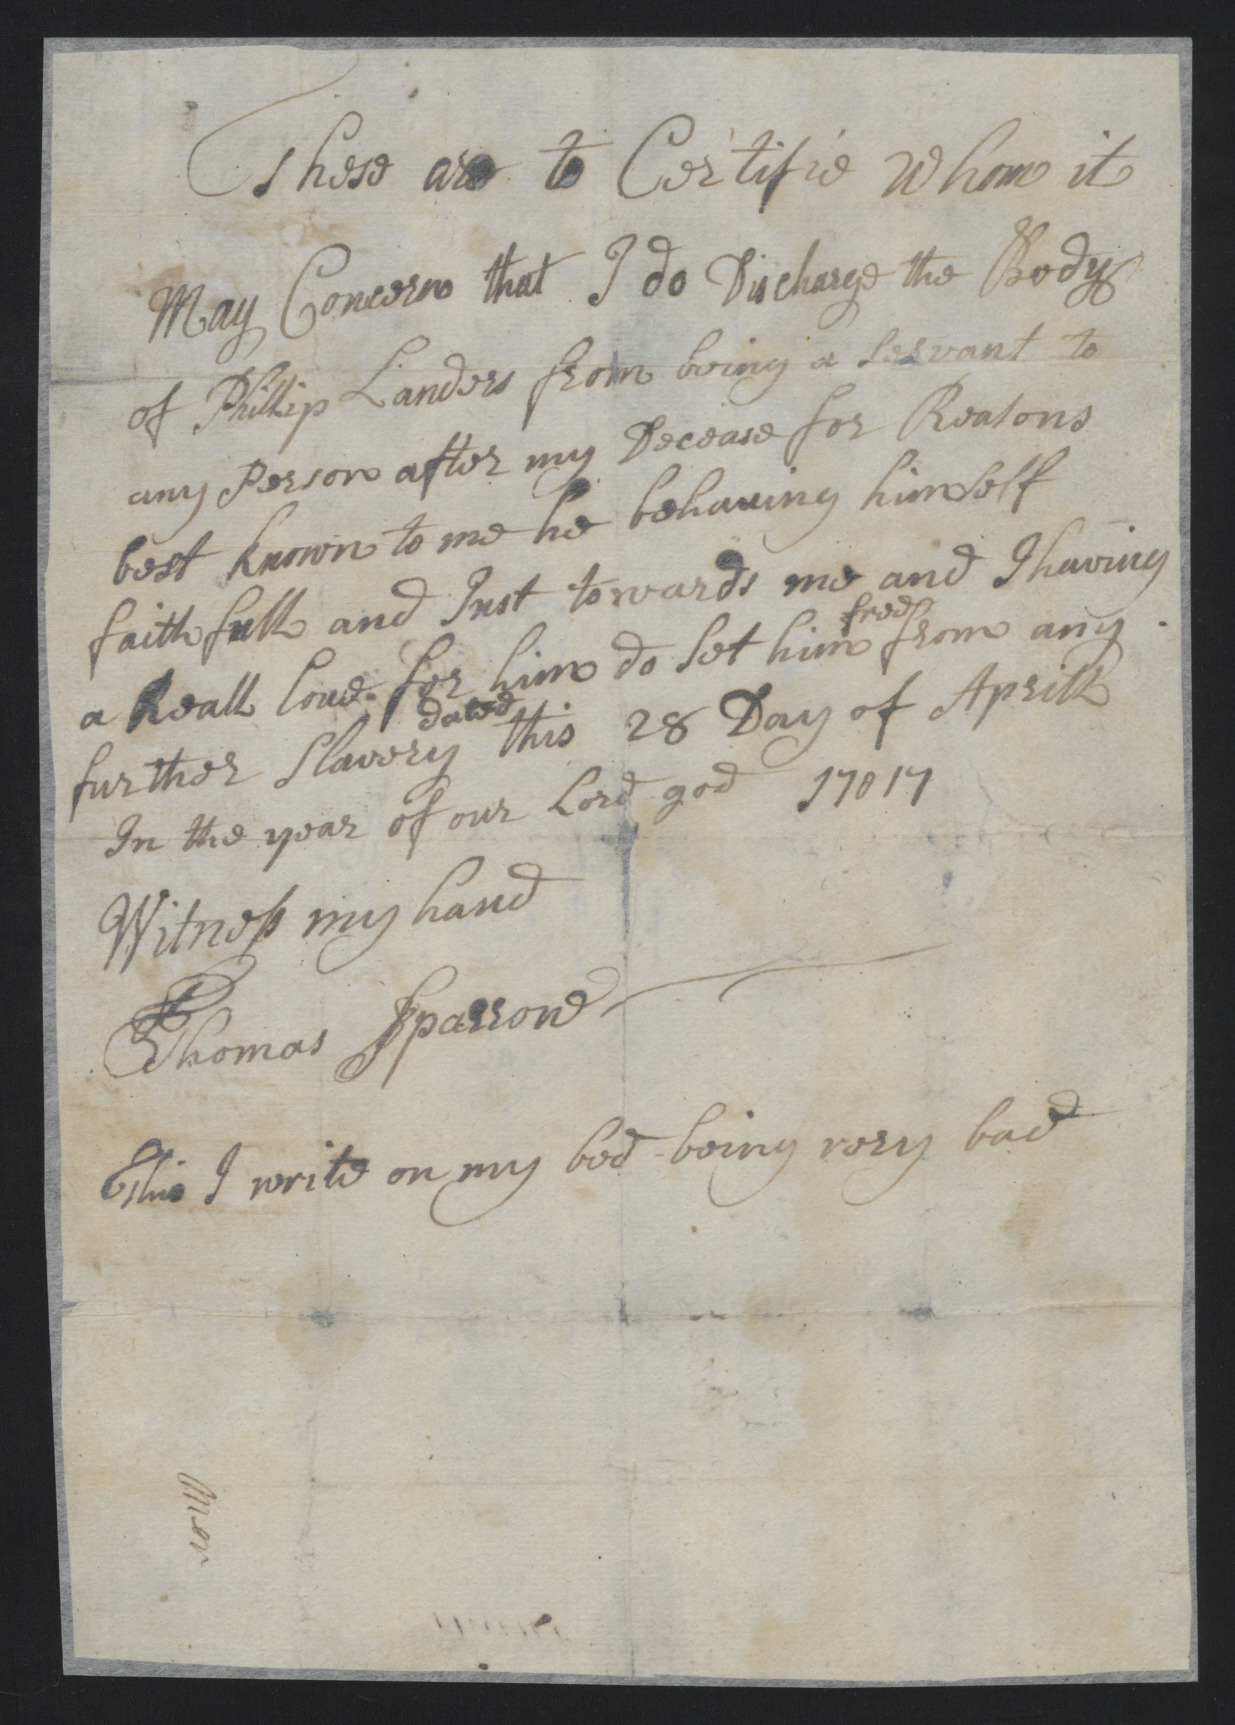 These are to Certifie Whom it
May Concern that I do Discharge the Body
of Phillip Landers from being a Servant to
any Person after my Decease for Reasons
best known to me he behauing himself
faithfull and Just towards me and I having
a Reall loue for him do Set him freed from any
further Slavery dated this 28 Day of Aprill
In the year of our Lord god 17017
Witness my hand
Thomas Sparrow
This I write on my bed being very bad